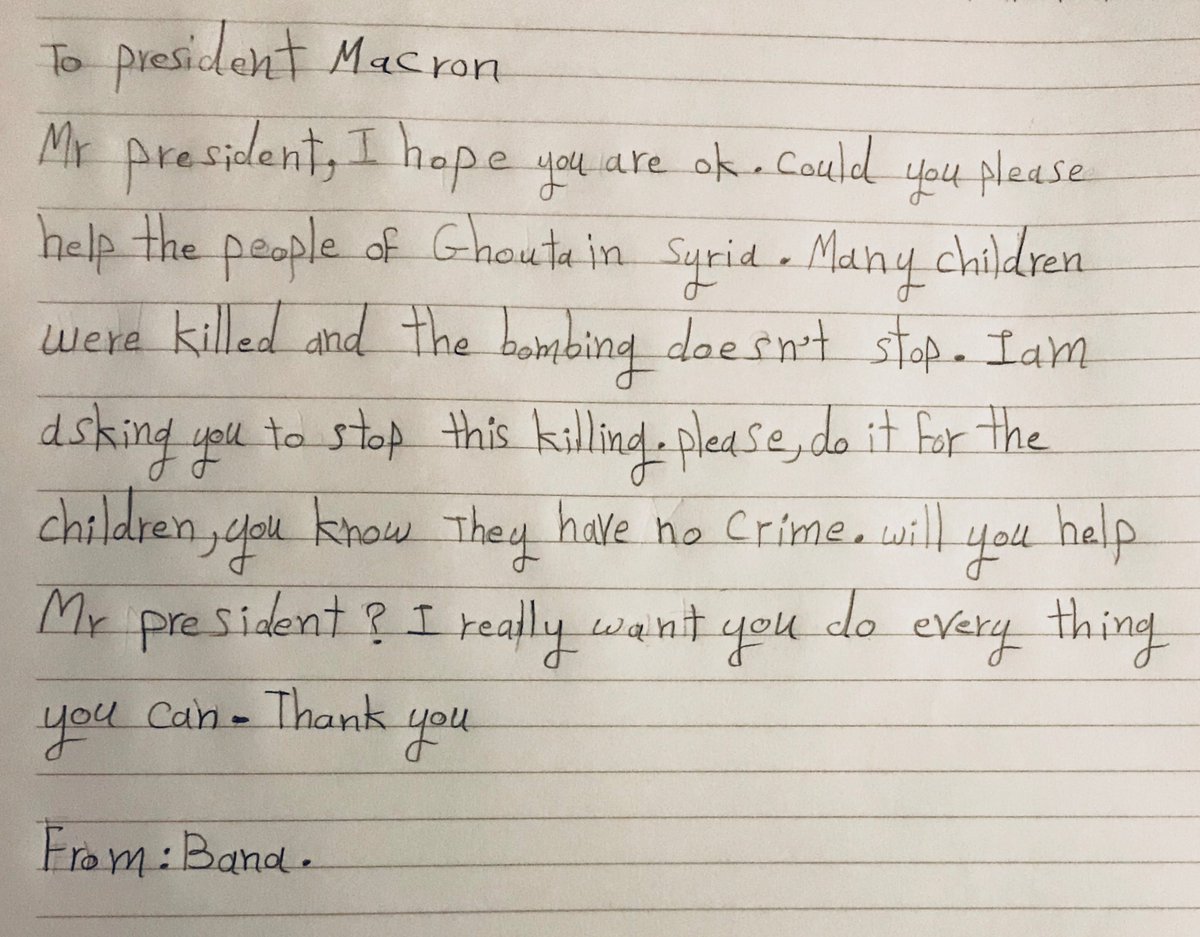 To president Macron
Mr president, I hope you are ok. Could you please
help the people of Ghouta in Syria. Many children
were killed and the bombing doesn't stop. I am
asking you to stop this killing. please, do it for the
children, you know They have no Crime. will you help
Mr president? I really want you do every thing
you can - Thank you
From: Bana.